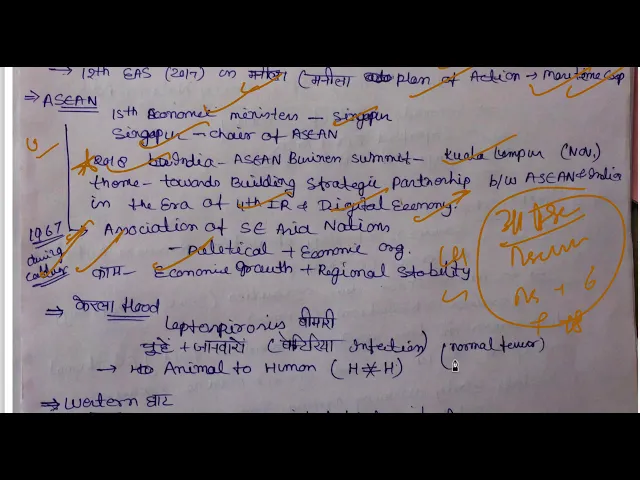 → 12th EAS (2017) in मनीला (मनीला plan of Action → Maritime Coop
⇒ ASEAN
15th Economic ministers — Singapur
Singapur — chair of ASEAN
2018 India - ASEAN Business summit - Kuala Lumpur (Nov.)
theme - towards Building Strategic Partnership b/w ASEAN & India
in the Era of 4th IR & Digital Economy.
1967 → Association of SE Asia Nations
during coldwar
- Political + Economic org.
काम - Economic Growth + Regional Stability
⇒ केरला flood
Leptospirosis बीमारी
चूहें + जानवरों (बैक्टिरिया Infection) (normal fever)
→ Animal to Human (H H)
⇒ Western घाट